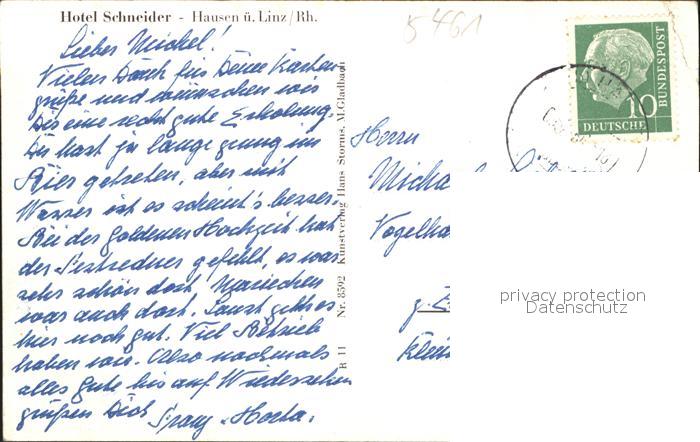 Hotel Schneider - Hausen ü. Linz/Rh.
5461
Lieber Michel!
Vielen Dank für Deine Karten-
grüße und wünschen wir
Dir eine recht gute Erholung.
Du hast ja lange genug im
Bier getreten, aber mit
Wasser ist es scheint's besser.
Bei der goldenen Hochzeit hat
der Festredner gefehlt, es war
sehr schön dort. Mariechen
war auch dort. Sonst geht es
hier noch gut. Viel Betrieb
haben wir. Also nochmals
alles gute bis auf Wiedersehen
grüßen Dich
Franz Horta.
R 11 Nr. 8592 Kunstverlag Hans Storms, M.Gladbach
10
DEUTSCHE
BUNDESPOST
Herrn
Micha
Vogelha
Klein
privacy protection
Datenschutz